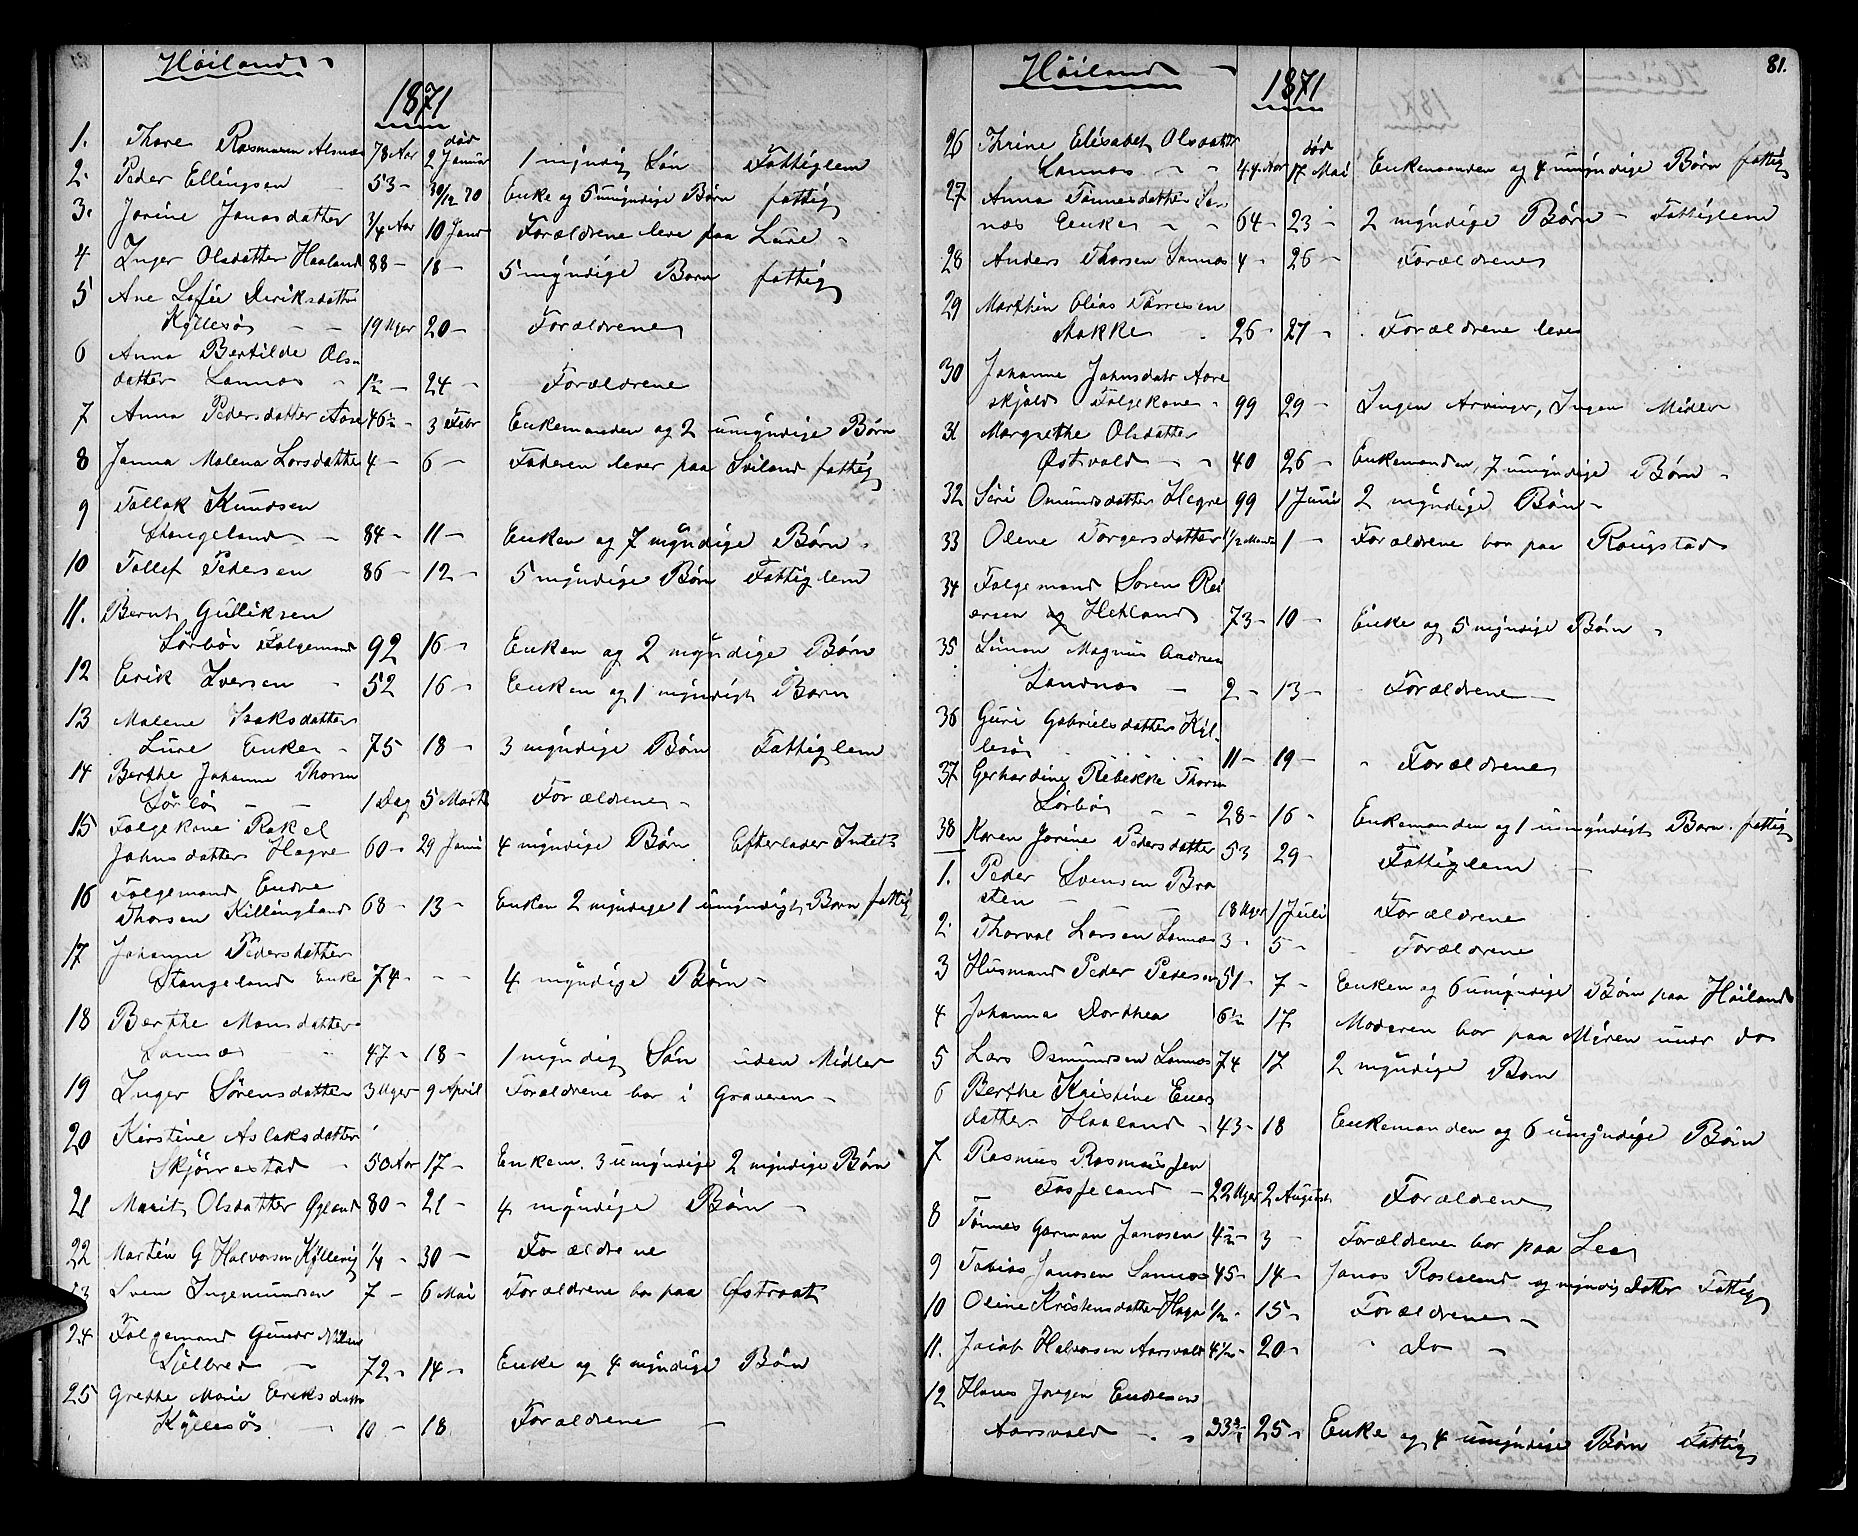 Höiland
1871
død
1. Thore Rasmussen 78 Aar 2 Januar 1 myndig Søn Fattiglem
2. Peder Ellingsen 53 – 30/12 70 Enke og 5 umyndige Børn fattig
3. Jorine Jonasdatter 3/4 Aar 10 Janr Forældrene leve paa Lure
4 Inger Olsdatter Haaland 88 – 18 – 5 myndige Børn fattig
5 Ane Sofie Eriksdatter
Kyllesö 19 Uger 20 – Forældrene
6 Anna Bertilde Ols-
datter Sannæs 1½ – 24 – Forældrene
7 Anna Pedersdatter Aase 46½ – 3 Febr Enkemanden og 2 umyndige Børn
8 Janna Malena Larsdatter 4 – 6 – Faderen lever paa Sviland fattig
9 Tollak Knudsen
Stangeland 84 – 11 – Enken og 7 myndige Børn
10 Tollef Pedersen 86 – 12 – 5 myndige Børn Fattiglem
11. Bernt Gulliksen
Sörbö Folgemand 92 16 – Enken og 2 myndige Børn
12 Erik Iversen 52 16 – Enken og 1 myndigt Barn
13 Malene Isaksdatter
Lure Enke 75 18 – 3 myndige Børn Fattiglem
14 Berthe Johanne Thorsen
Sörbö 1 Dag 5 Marts Forældrene
15 Folgekone Rakel
Johnsdatter Hogre 60 – 29 Janr 4 myndige Børn Efterlader Intet
16 Folgemand Endre
Thorsen Killingland 68 – 13 – Enken 2 myndige 1 umyndigt Barn fattig
17 Johanne Pedersdatter
Stangeland Enke 74 – – 4 myndige Børn
18 Berthe Monsdatter
Sannæs 47 – 18 – 1 myndig Søn uden Midler
19 Inger Sörensdatter 3 Uger 9 April Forældrene bor i Graveren
20 Kirstine Aslaksdatter
Skjörestad 50 Aar 17 – Enkem. 3 umyndige 2 myndige Børn
21 Marit Olsdatter Ogland 80 – 21 – 4 myndige Børn
22 Martin G Halvorsen Kyllevig 1/4 – 30 – Forældrene
23 Sven Ingemundsen 7 – 6 Mai Forældrene bo paa Østraat
24 Folgemand Gunar Nilsen
72 – 14 – Enke og 4 myndige Børn
25 Grethe Marie Eriksdatter
Kyllesö 10 – 18 Forældrene
81.
Höiland
1871
død
26 Thrine Elisabet Olsdatter
Sannæs 44 Aar 17 Mai Enkemanden og 4 umyndige Børn fattig
27 Anna Tönnesdatter San-
næs Enke 64 – 23 – 2 myndige Børn – Fattiglem
28 Anders Thorsen Sannæs 4 – 26 – Forældrene
29 Marthin Olias Tørresen
Stokke 26 – 27 – Forældrene leve
30 Johanne Johnsdatr Aare
skjold Folgekone 99 29 – Ingen Arvinger, Ingen Midler
31 Margrethe Olsdatter
Østvold 40 26 – Enkemanden, 7 umyndige Børn
32 Siri Omundsdatter Hogre 99 1 Juni 2 myndige Børn
33 Olene Torgersdatter 1/2 Mand 1 – Forældrene bor paa Rougstad
34 Folgemand Soren Rei
ersen Hetland 73 – 10 – Enke og 5 myndige Børn
35 Simon Magnus Andrea
Sandnæs 2 – 13 – Forældrene
36 Guri Gabrielsdatter Kyl-
lesö 11 – 19 – Forældrene
37 Gerhardine Rebekke Thorsen
Sörbö 28 – 16 – Enkemanden og 1 umyndigt Barn. fattig
38 Karen Jorine Pedersdatter 53 29 – Fattiglem
1. Peder Svensen Bra
sten 18 Uger 1 Juli Forældrene
2. Thorval Larsen Sannæs 3 – 5 – Forældrene
3 Husmand Peder Pedersen 51 – 7 – Enken og 6 umyndige Børn paa Höiland
4 Johanna Dorthea 6½ 17 Moderen bor paa Myren
5 Lars Osmundsen Sannæs 74 17 2 myndige Børn
6 Berthe Kristine Eners
datter Haaland 43 – 18 Enkemanden og 6 umyndige Børn
7 Rasmus Rasmussen
Fosseland 22 Uger 2 August Forældrene
8 Tönnes Garman Jonasen 4½ – 3 – Forældrene bor paa Lea
9 Tobias Jonasen Sannæs 45 – 14 – Jonas og myndig Datter Fattig
10 Oline Kristensdatter Hoga 1/2 – 15 – Forældrene
11. Jacob Halvorsen Aarsvold 4½ – 20 – Do
12 Hans Jorgen Endresen
Aarsvold 33¾ 25 – Enke og 4 umyndige Børn Fattig